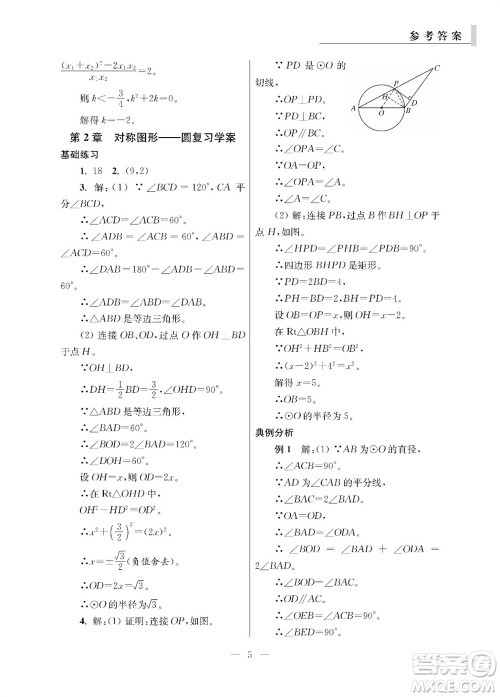 参考答案
(x₁+x₂)²-2x₁x₂
x₁x₂
=2。
则 k<-3/4, k²+2k=0。
解得 k=-2。
第 2 章 对称图形——圆复习学案
基础练习
1. 18 2. (9,2)
3. 解:(1) ∵∠BCD=120°, CA 平
分∠BCD,
∴∠ACD=∠ACB=60°。
∴∠ADB=∠ACB=60°, ∠ABD=
∠ACD=60°。
∴∠DAB=180°-∠ADB-∠ABD=
60°。
∴△ABD 是等边三角形。
(2) 连接 OB、OD, 过点 O 作 OH⊥BD
于点 H。
∴DH=1/2 BD=3/2。
∵△ABD 是等边三角形,
∴∠BAD=60°。
∴∠BOD=2∠BAD=120°。
∴∠DOH=60°。
设 OH=x, 则 OD=2x。
∴在 Rt△OHD 中, OH²+DH²=OD²。
∴x²+(3/2)²=(2x)²。
∴x=±√3/2 (负值舍去)。
∴OD=2x=√3。
∴⊙O 的半径为√3。
4. 解:(1) 证明:连接 OP, 如图。
∵PD 是⊙O 的
切线,
∴OP⊥PD。
∵BD⊥PD,
∴OP∥BD。
∴∠OPA=∠C。
∵OA=OP,
∴∠A=∠OPA。
∴∠A=∠C。
∴AB=CB。
(2) 解:连接 PB, 过点 B 作 BH⊥OP 于
点 H, 如图。
∴∠HPD=∠PHB=∠PDB=90°。
∴四边形 BHPD 是矩形。
∴BH=PD=4, PH=BD=2。
设 OB=OP=x, 则 OH=x-2。
在 Rt△OBH 中,
∵OH²+BH²=OB²,
∴(x-2)²+4²=x²。
解得 x=5。
∴OB=5。
∴⊙O 的半径为 5。
C
P
D
H
A
O
B
典例分析
例 1 解:(1) ∵AB 为⊙O 的直径,
∴∠ACB=90°。
∵CD 是∠ACB 的平分线,
∴∠ACD=∠BCD=45°。
∵OA=OD,
∴∠OAD=∠ODA。
∵∠CAB=2∠BAD, ∠BOD=
2∠BAD,
∴∠CAB=∠BOD。
∴OD∥AC。
∴∠OEB=∠ACB=90°。
∵∠ACB=90°,
— 5 —
答案圈
MXQE.COM